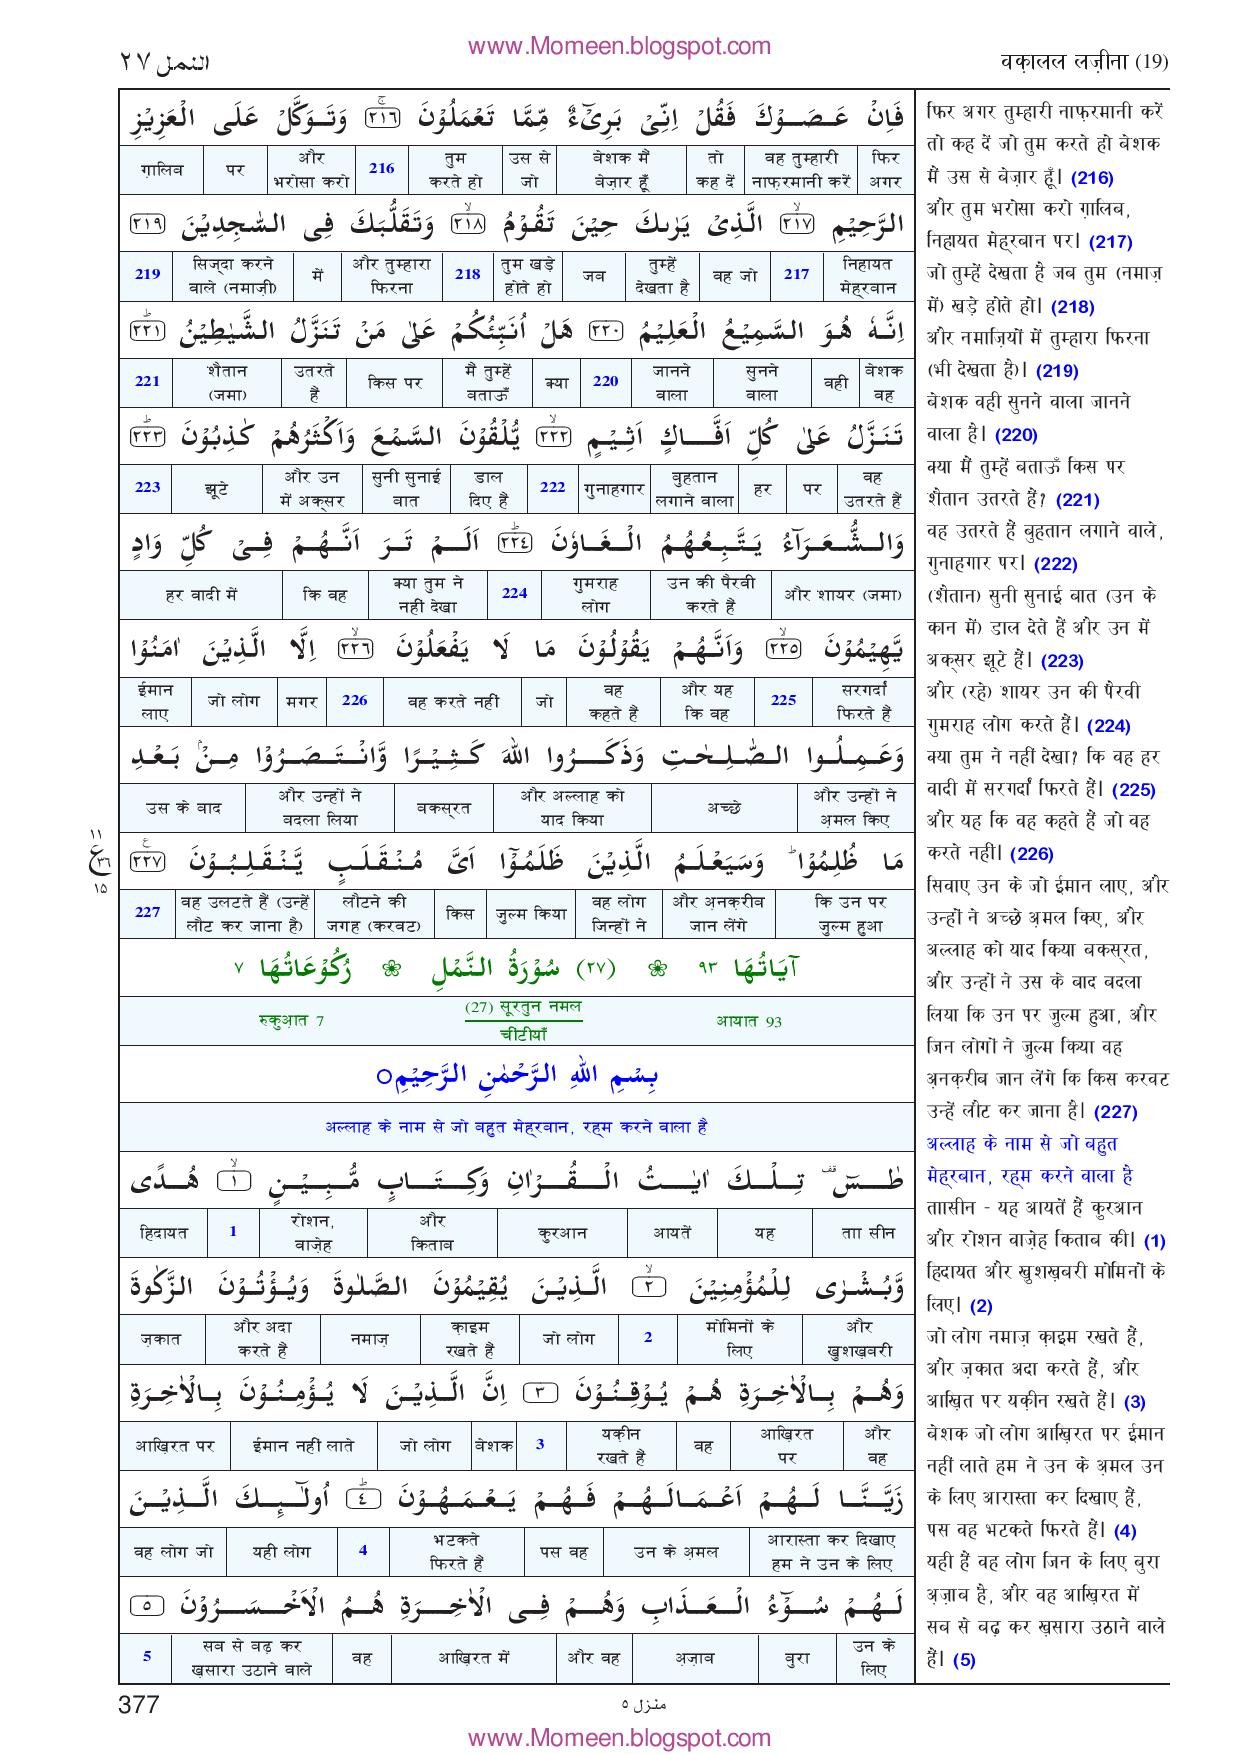 www.Momeen.blogspot.com
النمل ٢٧
वक़ालल लज़ीना (19)
فَاِنْ عَصَوْكَ فَقُلْ اِنِّیْ بَرِیْٓءٌ مِّمَّا تَعْمَلُوْنَ ﴿٢١٦﴾ۚ وَتَوَكَّلْ عَلَى الْعَزِيْزِ
फिर अगर | वह तुम्हारी नाफ़रमानी करें | तो कह दें | बेशक मैं बेज़ार हूँ | उस से जो | तुम करते हो | 216 | और भरोसा करो | पर | ग़ालिब
الرَّحِيْمِ ﴿٢١٧﴾ۙ الَّذِىْ يَرٰىكَ حِيْنَ تَقُوْمُ ﴿٢١٨﴾ۙ وَتَقَلُّبَكَ فِى السّٰجِدِيْنَ ﴿٢١٩﴾
निहायत मेह्रबान | 217 | वह जो | तुम्हें देखता है | जब | तुम खड़े होते हो | 218 | और तुम्हारा फिरना | में | सिज्दा करने वाले (नमाज़ी) | 219
اِنَّهٗ هُوَ السَّمِيْعُ الْعَلِيْمُ ﴿٢٢٠﴾ هَلْ اُنَبِّئُكُمْ عَلٰى مَنْ تَنَزَّلُ الشَّيٰطِيْنُ ﴿٢٢١﴾ؕ
बेशक वह | वही | सुनने वाला | जानने वाला | 220 | क्या | मैं तुम्हें बताऊँ | किस पर | उतरते हैं | शैतान (जमा) | 221
تَنَزَّلُ عَلٰى كُلِّ اَفَّاكٍ اَثِيْمٍ ﴿٢٢٢﴾ۙ يُّلْقُوْنَ السَّمْعَ وَاَكْثَرُهُمْ كٰذِبُوْنَ ﴿٢٢٣﴾ؕ
वह उतरते हैं | पर | हर | बुहतान लगाने वाला | गुनाहगार | 222 | डाल दिए हैं | सुनी सुनाई बात | और उन में अक्सर | झूटे | 223
وَالشُّعَرَآءُ يَتَّبِعُهُمُ الْغَاوٗنَ ﴿٢٢٤﴾ؕ اَلَمْ تَرَ اَنَّهُمْ فِىْ كُلِّ وَادٍ
और शायर (जमा) | उन की पैरवी करते हैं | गुमराह लोग | 224 | क्या तुम ने नहीं देखा | कि वह | हर वादी में
يَّهِيْمُوْنَ ﴿٢٢٥﴾ۙ وَاَنَّهُمْ يَقُوْلُوْنَ مَا لَا يَفْعَلُوْنَ ﴿٢٢٦﴾ۙ اِلَّا الَّذِيْنَ اٰمَنُوْا
सरगर्दां फिरते हैं | 225 | और यह कि वह | वह कहते हैं | जो | वह करते नहीं | 226 | मगर | जो लोग | ईमान लाए
وَعَمِلُوا الصّٰلِحٰتِ وَذَكَرُوا اللّٰهَ كَثِيْرًا وَّانْتَصَرُوْا مِنْۢ بَعْدِ
और उन्हों ने अ़मल किए | अच्छे | और अल्लाह को याद किया | बकस्रत | और उन्हों ने बदला लिया | उस के बाद
مَا ظُلِمُوْا ؕ وَسَيَعْلَمُ الَّذِيْنَ ظَلَمُوْٓا اَىَّ مُنْقَلَبٍ يَّنْقَلِبُوْنَ ﴿٢٢٧﴾
١١ ع ٣٦ ١٥
कि उन पर ज़ुल्म हुआ | और अ़नक़रीब जान लेंगे | वह लोग जिन्हों ने | ज़ुल्म किया | किस | लौटने की जगह (करवट) | वह उलटते हैं (उन्हें लौट कर जाना है) | 227
آيَاتُهَا ٩٣ ❀ (٢٧) سُوْرَةُ النَّمْلِ ❀ رُكُوْعَاتُهَا ٧
आयात 93 | (27) सूरतुन नमल चींटीयाँ | रुकुआ़त 7
بِسْمِ اللّٰهِ الرَّحْمٰنِ الرَّحِيْمِ ○
अल्लाह के नाम से जो बहुत मेह्रबान, रह्म करने वाला है
طٰسٓ ۣ تِلْكَ اٰيٰتُ الْقُرْاٰنِ وَكِتَابٍ مُّبِيْنٍ ﴿١﴾ۙ هُدًى
ताा सीन | यह | आयतें | कुरआन | और किताब | रोशन, वाज़ेह | 1 | हिदायत
وَّبُشْرٰى لِلْمُؤْمِنِيْنَ ﴿٢﴾ۙ الَّذِيْنَ يُقِيْمُوْنَ الصَّلٰوةَ وَيُؤْتُوْنَ الزَّكٰوةَ
और खुशख़बरी | मोमिनों के लिए | 2 | जो लोग | क़ाइम रखते हैं | नमाज़ | और अदा करते हैं | ज़कात
وَهُمْ بِالْاٰخِرَةِ هُمْ يُوْقِنُوْنَ ﴿٣﴾ اِنَّ الَّذِيْنَ لَا يُؤْمِنُوْنَ بِالْاٰخِرَةِ
और वह | आख़िरत पर | वह | यक़ीन रखते हैं | 3 | बेशक | जो लोग | ईमान नहीं लाते | आख़िरत पर
زَيَّنَّا لَهُمْ اَعْمَالَهُمْ فَهُمْ يَعْمَهُوْنَ ﴿٤﴾ؕ اُولٰٓئِكَ الَّذِيْنَ
आरास्ता कर दिखाए हम ने उन के लिए | उन के अ़मल | पस वह | भटकते फिरते हैं | 4 | यही लोग | वह लोग जो
لَهُمْ سُوْٓءُ الْعَذَابِ وَهُمْ فِى الْاٰخِرَةِ هُمُ الْاَخْسَرُوْنَ ﴿٥﴾
उन के लिए | बुरा | अ़ज़ाब | और वह | आख़िरत में | वह | सब से बढ़ कर ख़सारा उठाने वाले | 5
फिर अगर तुम्हारी नाफ़रमानी करें
तो कह दें जो तुम करते हो बेशक
मैं उस से बेज़ार हूँ। (216)
और तुम भरोसा करो ग़ालिब,
निहायत मेह्रबान पर। (217)
जो तुम्हें देखता है जब तुम (नमाज़
में) खड़े होते हो। (218)
और नमाज़ियों में तुम्हारा फिरना
(भी देखता है)। (219)
बेशक वही सुनने वाला जानने
वाला है। (220)
क्या मैं तुम्हें बताऊँ किस पर
शैतान उतरते हैं? (221)
वह उतरते हैं बुहतान लगाने वाले,
गुनाहगार पर। (222)
(शैतान) सुनी सुनाई बात (उन के
कान में) डाल देते हैं और उन में
अक्सर झूटे हैं। (223)
और (रहे) शायर उन की पैरवी
गुमराह लोग करते हैं। (224)
क्या तुम ने नहीं देखा? कि वह हर
वादी में सरगर्दां फिरते हैं। (225)
और यह कि वह कहते हैं जो वह
करते नहीं। (226)
सिवाए उन के जो ईमान लाए, और
उन्हों ने अच्छे अ़मल किए, और
अल्लाह को याद किया बकस्रत,
और उन्हों ने उस के बाद बदला
लिया कि उन पर ज़ुल्म हुआ, और
जिन लोगों ने ज़ुल्म किया वह
अ़नक़रीब जान लेंगे कि किस करवट
उन्हें लौट कर जाना है। (227)
अल्लाह के नाम से जो बहुत
मेह्रबान, रह्म करने वाला है
ताासीन - यह आयतें हैं कुरआन
और रोशन वाज़ेह किताब की। (1)
हिदायत और खुशख़बरी मोमिनों के
लिए। (2)
जो लोग नमाज़ क़ाइम रखते हैं,
और ज़कात अदा करते हैं, और
आख़ित पर यक़ीन रखते हैं। (3)
बेशक जो लोग आख़िरत पर ईमान
नहीं लाते हम ने उन के अ़मल उन
के लिए आरास्ता कर दिखाए हैं,
पस वह भटकते फिरते हैं। (4)
यही हैं वह लोग जिन के लिए बुरा
अ़ज़ाब है, और वह आख़िरत में
सब से बढ़ कर ख़सारा उठाने वाले
हैं। (5)
377
منزل ٥
www.Momeen.blogspot.com